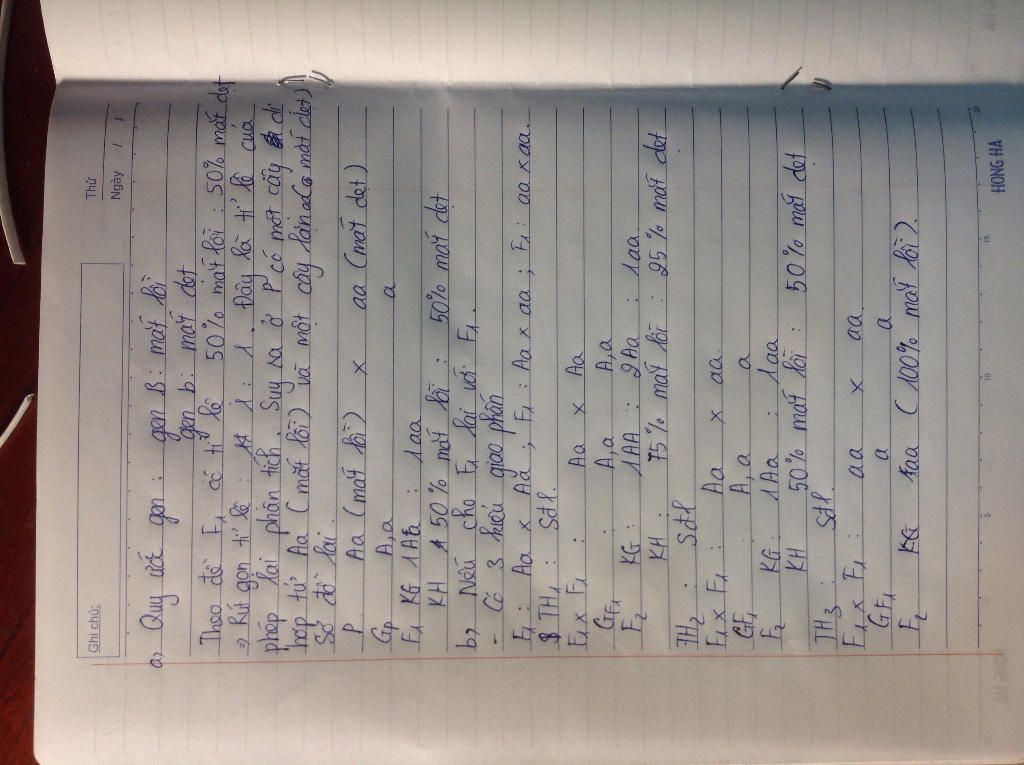 Ghi chú:
Thứ
Ngày / /
a, Quy ước gen : gen B : mắt lồi
gen b : mắt dẹt
Theo đề F1 có tỉ lệ 50% mắt lồi : 50% mắt dẹt
⇒ Rút gọn tỉ lệ : 1 : 1. Đây là tỉ lệ của
phép lai phân tích. Suy ra ở P có một cây dị
hợp tử Aa (mắt lồi) và một cây lặn aa (mắt dẹt)
Sơ đồ lai.
P Aa (mắt lồi) x aa (mắt dẹt)
GP A,a a
F1 KG 1Aa : 1aa
KH 50% mắt lồi : 50% mắt dẹt
b, Nếu cho F1 lai với F1.
- Có 3 kiểu giao phấn
F1 : Aa x Aa ; F1 : Aa x aa ; F1 : aa x aa.
TH1 : Sđl.
F1 x F1 : Aa x Aa
GF1 A,a A,a
F2 KG : 1AA : 2Aa : 1aa
KH 75% mắt lồi : 25% mắt dẹt
TH2 : Sđl
F1 x F1 : Aa x aa
GF1 A,a a
F2 KG : 1Aa : 1aa
KH 50% mắt lồi : 50% mắt dẹt
TH3 : Sđl.
F1 x F1 : aa x aa
GF1 a a
F2 KG 1aa (100% mắt lồi).
HONG HA